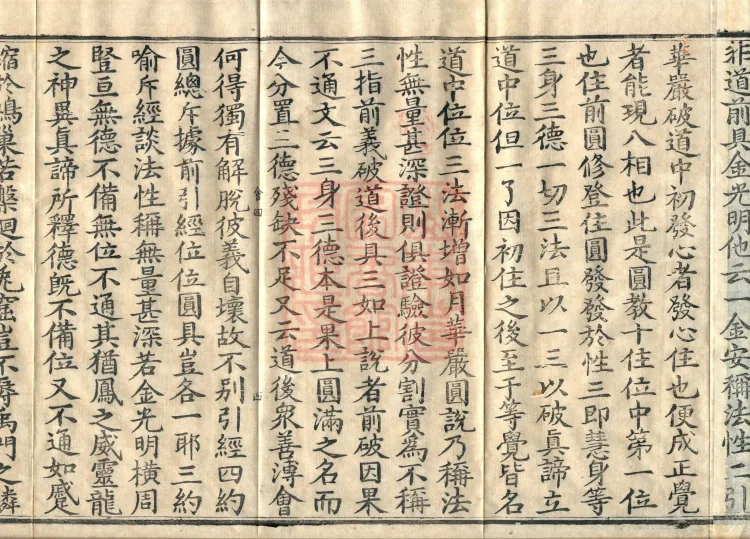 非道前具金光明他云一金安稱法性二引
華嚴破道中初發心者發心住也便成正覺
者能現八相也此是圓教十住位中第一位
也住前圓修登住圓發發於性三即慧身等
三身三德一切三法且以一三以破真諦立
道中位但一了因初住之後至于等覺皆名
道中位位三法漸增如月華嚴圓說乃稱法
性無量甚深證則俱證驗彼分割實為不稱
三指前義破道後具三如上說者前破因果
不通文云三身三德本是果上圓滿之名而
今分置二德殘缺不足又云道後眾善溥會
何得獨有解脫彼義自壞故不別引經四約
圓總斥據前引經位位圓具豈各一耶三約
喻斥經談法性稱無量甚深若金光明橫周
豎亘無德不備無位不通其猶鳳之威靈龍
之神異真諦所釋德既不備位又不通如蹙
縮於鳩巢若盤迴於兔窟豈不辱禹門之鱗